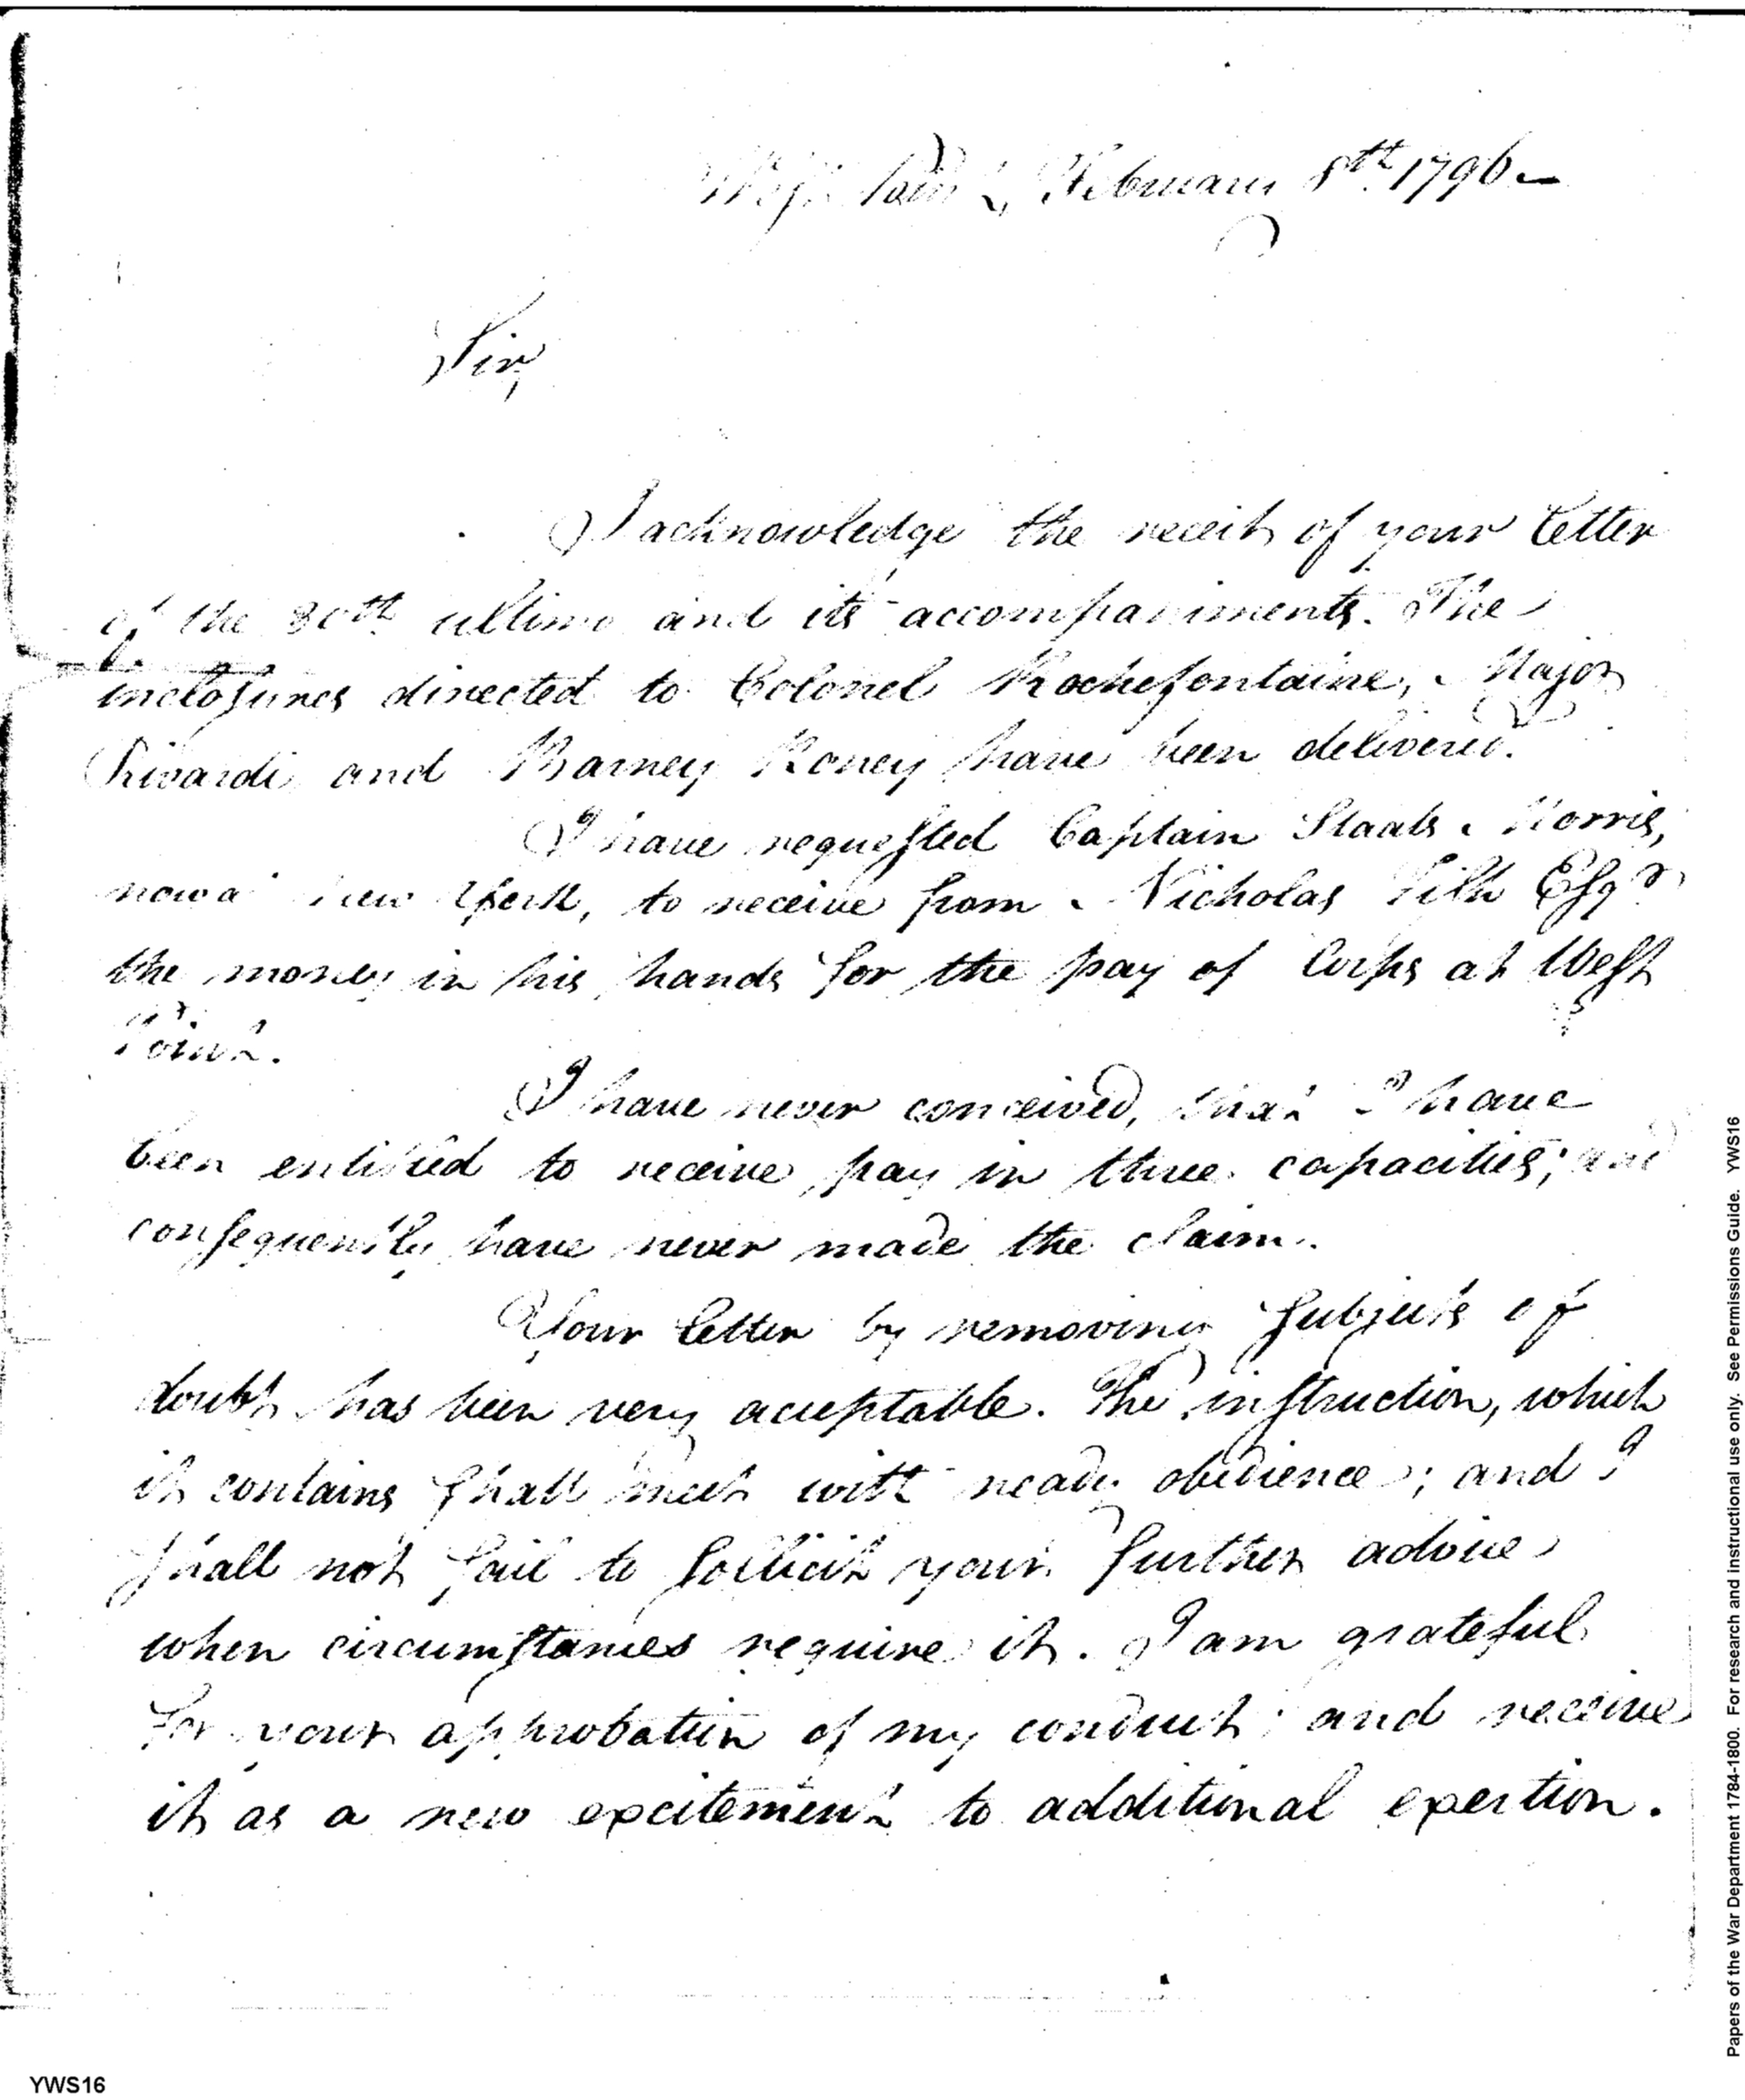 West Point, February 8th 1796 –
Sir,
I acknowledge the receit of your letter
of the 30th ultimo and its accompaniments. The
inclosures directed to Colonel Rochefontaine, Major
Rivardi and Barney Roney have been delivered.
I have requested Captain Staats Morris,
now a New York, to receive from Nicholas Fish Esqr
the money in his hands for the pay of Corps at West
Point.
I have never conceived, that I have
been entitled to receive pay in three capacities; and
consequently have never made the claim.
Your letter by removing subjects of
doubt has been very acceptable. The instruction, which
it contains shall meet with ready obedience; and I
shall not fail to sollicit your further advice
when circumstances require it. I am grateful
for your approbation of my conduct; and receive
it as a new excitement to additional exertion.
YWS16
Papers of the War Department 1784-1800. For research and instructional use only. See Permissions Guide. YWS16